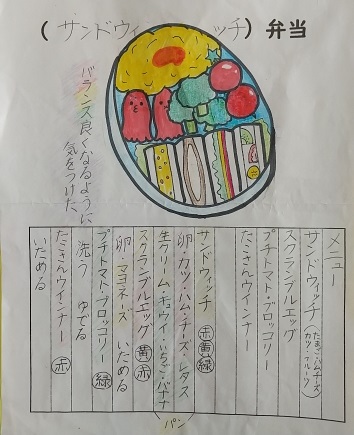 (サンドウィッチ) 弁当
バランス良くなるように
気をつけた。
メニュー
サンドウィッチ(たまご・ハムチーズ
カツ・フルーツ)
スクランブルエッグ
プチトマト・ブロッコリー
たこさんウインナー
サンドウィッチ 赤 黄 緑
卵・カツ・ハム・チーズ・レタス
生クリーム・キュウイ・いちご・バナナ
パン
スクランブルエッグ 黄 赤
卵・マヨネーズ いためる
プチトマト・ブロッコリー 緑
洗う ゆでる
たこさんウインナー 赤
いためる